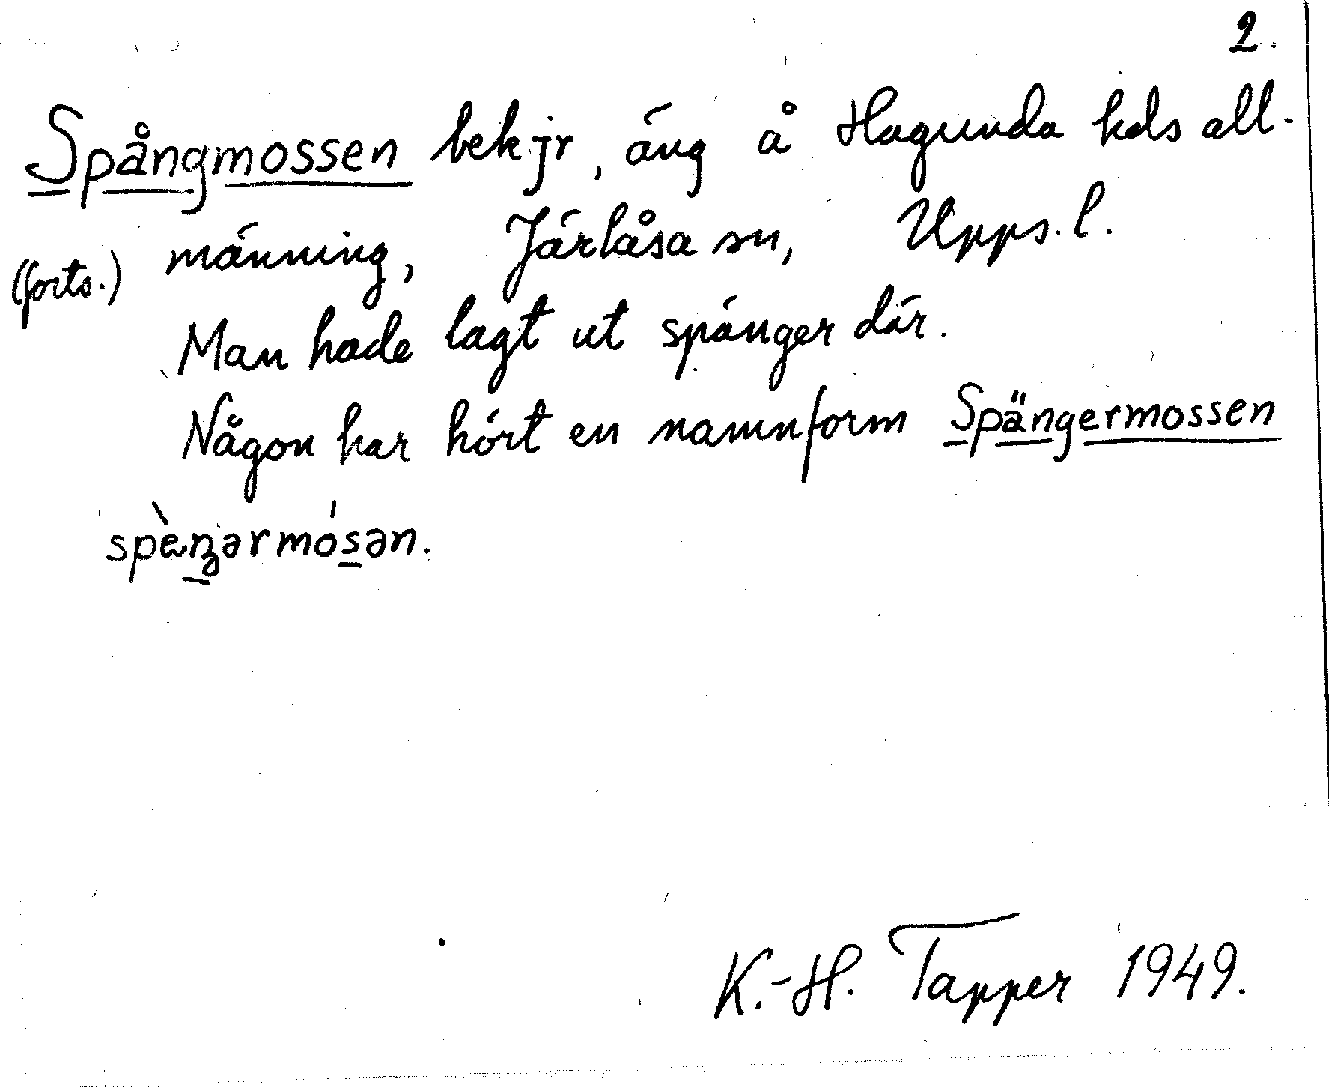 2.
Spångmossen bekjr, äng å Hagunda hds all-
männing, Järlåsa sn, Upps. l.
(forts.)
Man hade lagt ut spänger där.
Någon har hört en namnform Spängermossen
spèŋərmósən.
K.-H. Tapper 1949.